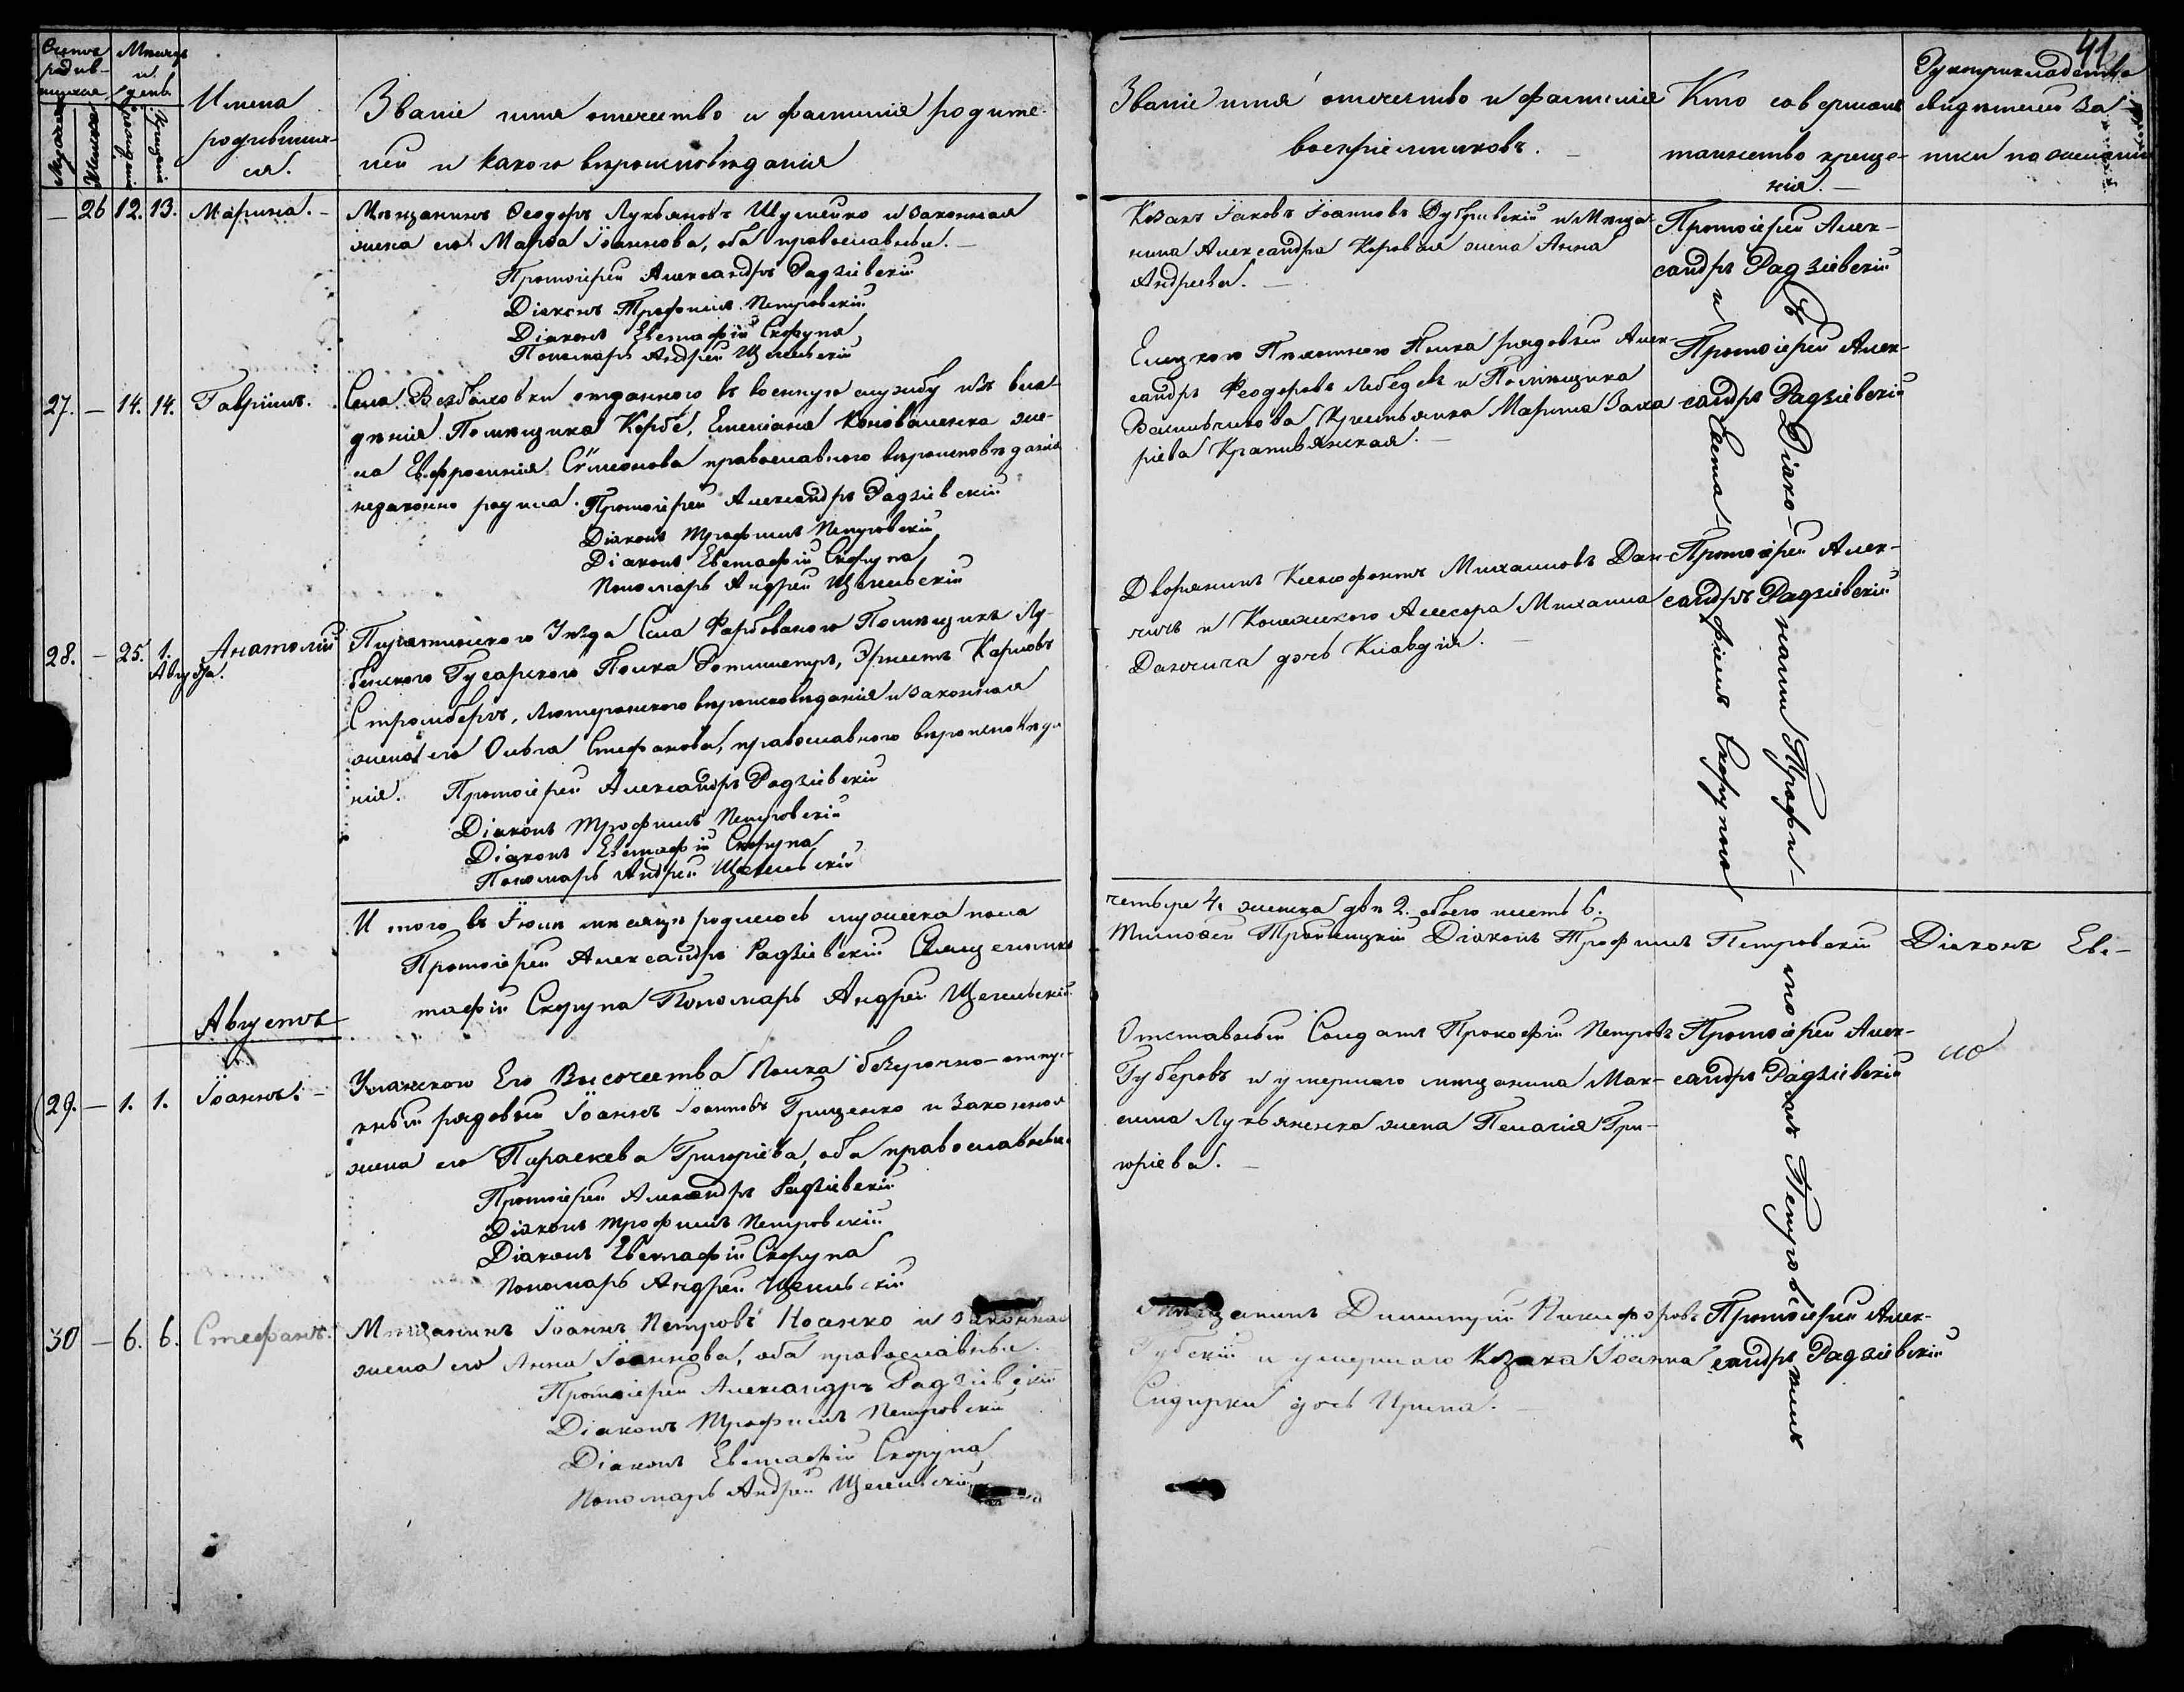 41
Счетъ родив-
шихся
Мужеска
Женска
Мѣсяцъ
и
день
Рожденія
Крещенія
Имена
родивших-
ся.
Званіе имя отечество и фамилія родите-
лей и какого вѣроисповѣданія
Званіе имя отечество и фамилія
воспріемниковъ.
Кто совершалъ
таинство креще-
нія.
Рукоприкладство
свидѣтелей за-
писи по желанію
— 26 12. 13. Марина.
Мѣщанинъ Ѳеодоръ Лукьяновъ и законная
жена его Марѳа Іоаннова, оба православные.
Протоіерей Александръ Радзіевскій
Діаконъ Трофимъ Петровскій
Діаконъ Евстафій Скорупа
Пономарь Андрей Щегельскій
Козакъ Іаковъ Іоанновъ и Мѣща-
нина Александра жена Анна
Андреева.
Протоіерей Алек-
сандръ Радзіевскій
27. — 14. 14. Гавріилъ.
Села отданного въ военную службу изъ вла-
дѣнія Помѣщика Корбе, Емеліана Коноваленка же-
на Евфросинія Сѵмеонова православного вѣроисповѣданія
незаконно родила.
Протоіерей Александръ Радзіевскій
Діаконъ Трофимъ Петровскій
Діаконъ Евстафій Скорупа
Пономарь Андрей Щегельскій
Елецкого Пѣхотного Полка рядовый Алек-
сандръ Феодоровъ Лебедевъ и Помѣщика
крестьянка Марина Заха-
ріева Крапивянская.
Протоіерей Алек-
сандръ Радзіевскій
28. — 25. 1. Августа. Анатолій
Пирятинского Уѣзда Села Фарбованого Помѣщикъ Лу-
бенского Гусарского Полка Ротмистръ, Эрнестъ Карловъ
Стромбергъ, Лютеранского вѣроисповѣданія и законная
жена его Ольга Стефанова, православного вѣроисповѣда-
нія.
Протоіерей Александръ Радзіевскій
Діаконъ Трофимъ Петровскій
Діаконъ Евстафій Скорупа
Пономарь Андрей Щегельскій
Дворянинъ Ксенофонтъ Михаиловъ Дан-
чичъ и Колежского Асесора Михаила
дочь Клавдія.
Протоіерей Алек-
сандръ Радзіевскій
Съ Діако-
нами Трофи-
момъ Петровс-
кимъ
и Евста-
фіемъ Скорупою
И того въ Іюлѣ мѣсяцѣ родилось мужеска пола
четыре 4. женска двѣ 2. обоего шесть 6.
Протоіерей Александръ Радзіевскій Священникъ
Тимоѳей Діаконъ Трофимъ Петровскій Діаконъ Евс-
тафій Скорупа Пономарь Андрей Щегельскій
Августъ
29. — 1. 1. Іоаннъ.
Уланского Его Высочества Полка безсрочно-отпус-
кный рядовый Іоаннъ Іоанновъ Гриценко и законная
жена его Параскева Григоріева, оба православные.
Протоіерей Александръ Радзіевскій
Діаконъ Трофимъ Петровскій
Діаконъ Евстафій Скорупа
Пономарь Андрей Щегельскій
Отставный Солдатъ Прокофій Петровъ
Губеровъ и умершаго мѣщанина Мак-
сима Лукьяненка жена Пелагія Гри-
горіева.
Протоіерей Алек-
сандръ Радзіевскій
30 — 6. 6. Стефанъ.
Мѣщанинъ Іоаннъ Петровъ Носенко и законная
жена его Анна Іоаннова, оба православные.
Протоіерей Александръ Радзіевскій
Діаконъ Трофимъ Петровскій
Діаконъ Евстафій Скорупа
Пономарь Андрей Щегельскій
Мѣщанинъ Димитрій Никифоровъ
Губскій и умершаго Козака Іоанна
Сидирки дочь Ирина.
Протоіерей Алек-
сандръ Радзіевскій